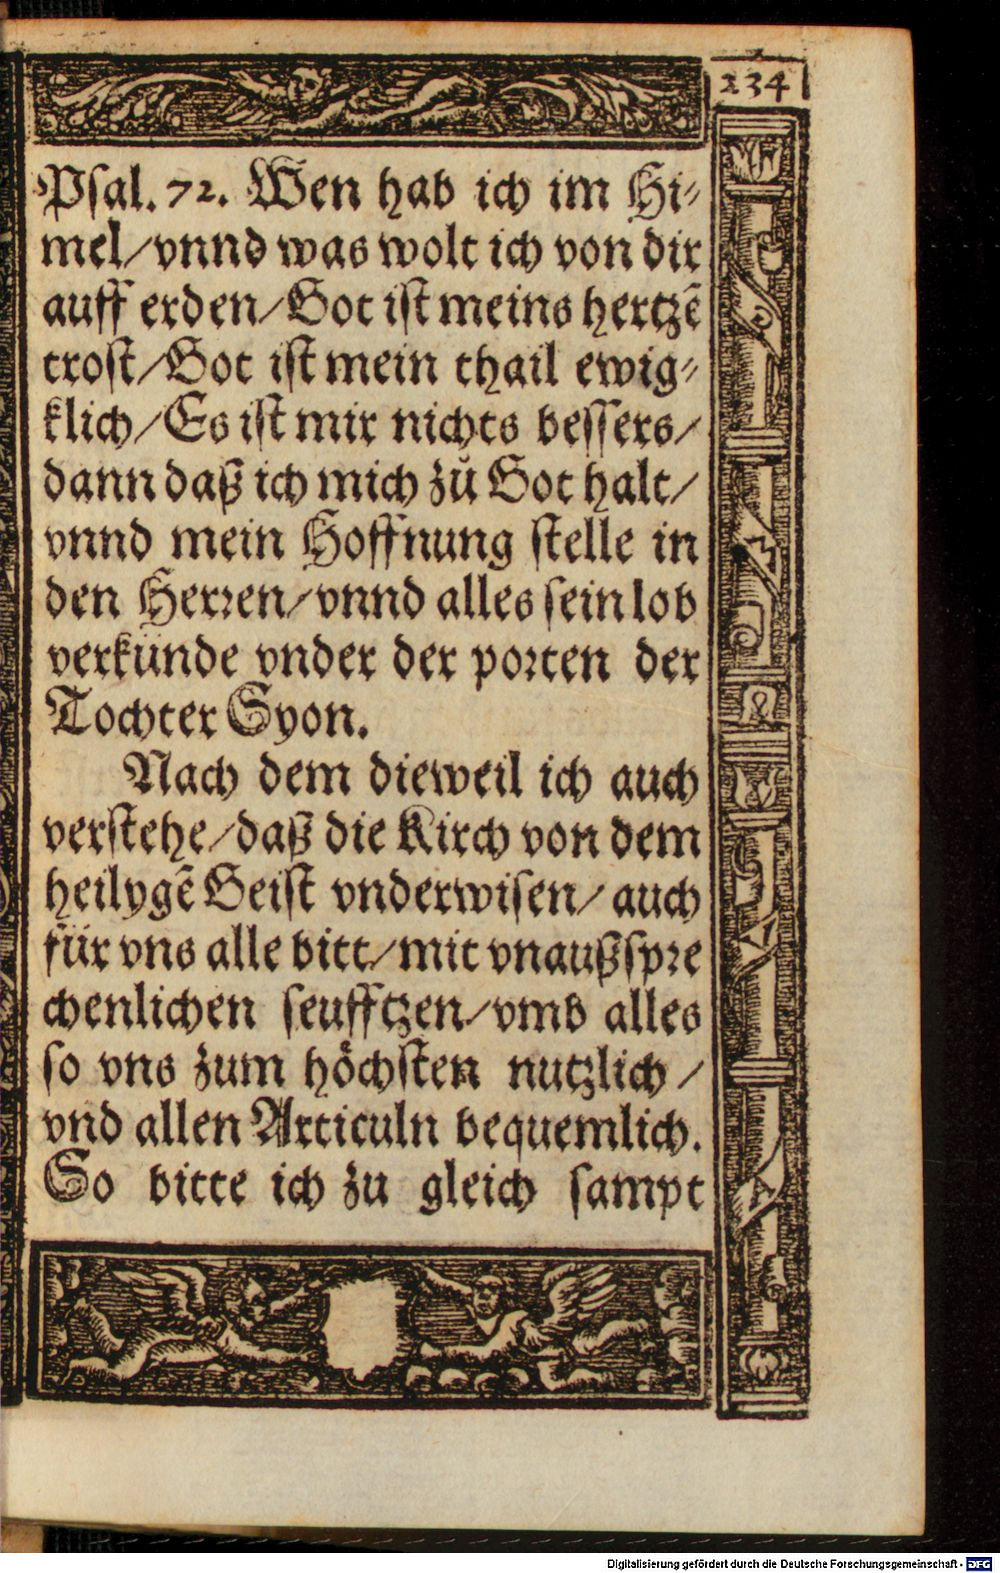 234
Psal. 72. Wen hab ich im Hi⸗
mel/ vnnd was wolt ich von dir
auff erden/ Got ist meins hertzẽ
trost/ Got ist mein thail ewig⸗
klich/ Es ist mir nichts bessers/
dann daß ich mich zů Got halt/
vnnd mein Hoffnung stelle in
den Herren/ vnnd alles sein lob
verkünde vnder der porten der
Tochter Syon.
Nach dem dieweil ich auch
verstehe/ daß die Kirch von dem
heilygẽ Geist vnderwisen/ auch
für vns alle bitt/ mit vnaußspre
chenlichen seufftzen/ vmb alles
so vns zum höchsten nutzlich/
vnd allen Articuln bequemlich.
So bitte ich zu gleich sampt
Digitalisierung gefördert durch die Deutsche Forschungsgemeinschaft - DFG